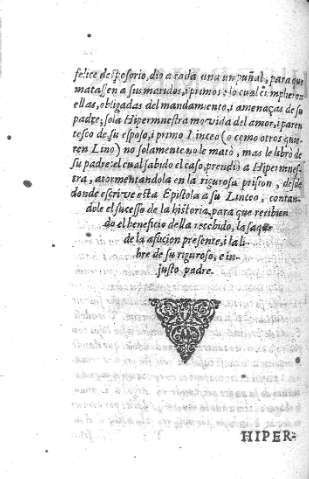 felice desposorio, dio a cada una un puñal, para que
matassen a sus maridos, i primos: lo cual cumplieron
ellas, obligadas del mandamiento, i amenaças de su
padre; sola Hipermnestra movida del amor, i paren
tesco de su esposo, i primo Linceo (o como otros quie
ren Lino) no solamente no le matò, mas le librò de
su padre: el cual sabido el caso, prendiò a Hipermnes-
tra, atormentandola en la rigurosa prision, desde
donde escrive esta Epistola a su Linceo, contan-
dole el sucesso de la historia, para que recibien
do el beneficio della recebido, la saque
de la presente, i la li
bre de su riguroso, e in-
justo padre.
HIPER-